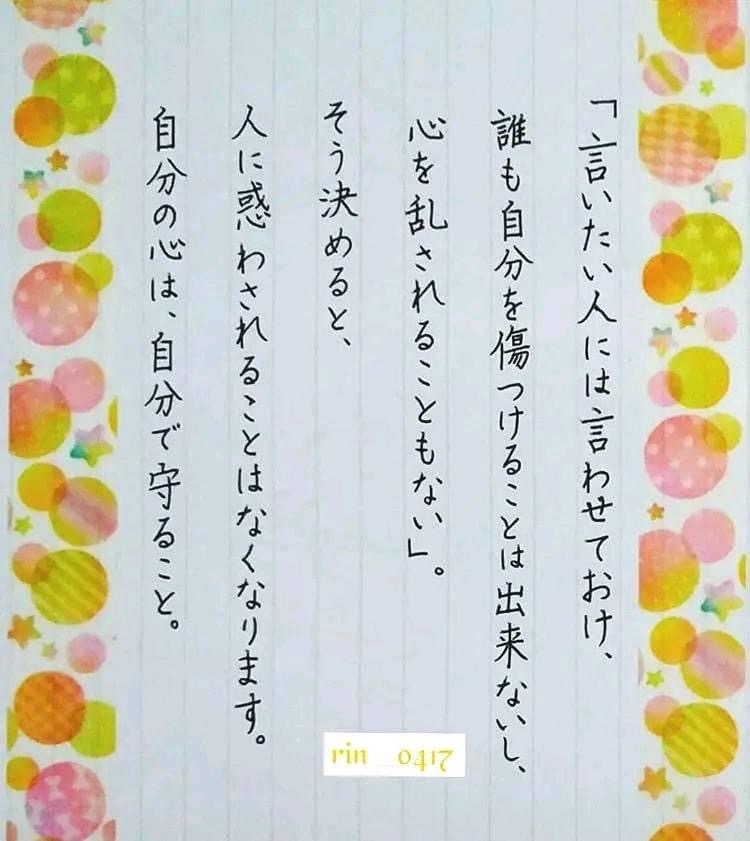 「言いたい人には言わせておけ、
誰も自分を傷つけることは出来ないし、
心を乱されることもない」。
そう決めると、
人に惑わされることはなくなります。
自分の心は、自分で守ること。
rin__0417